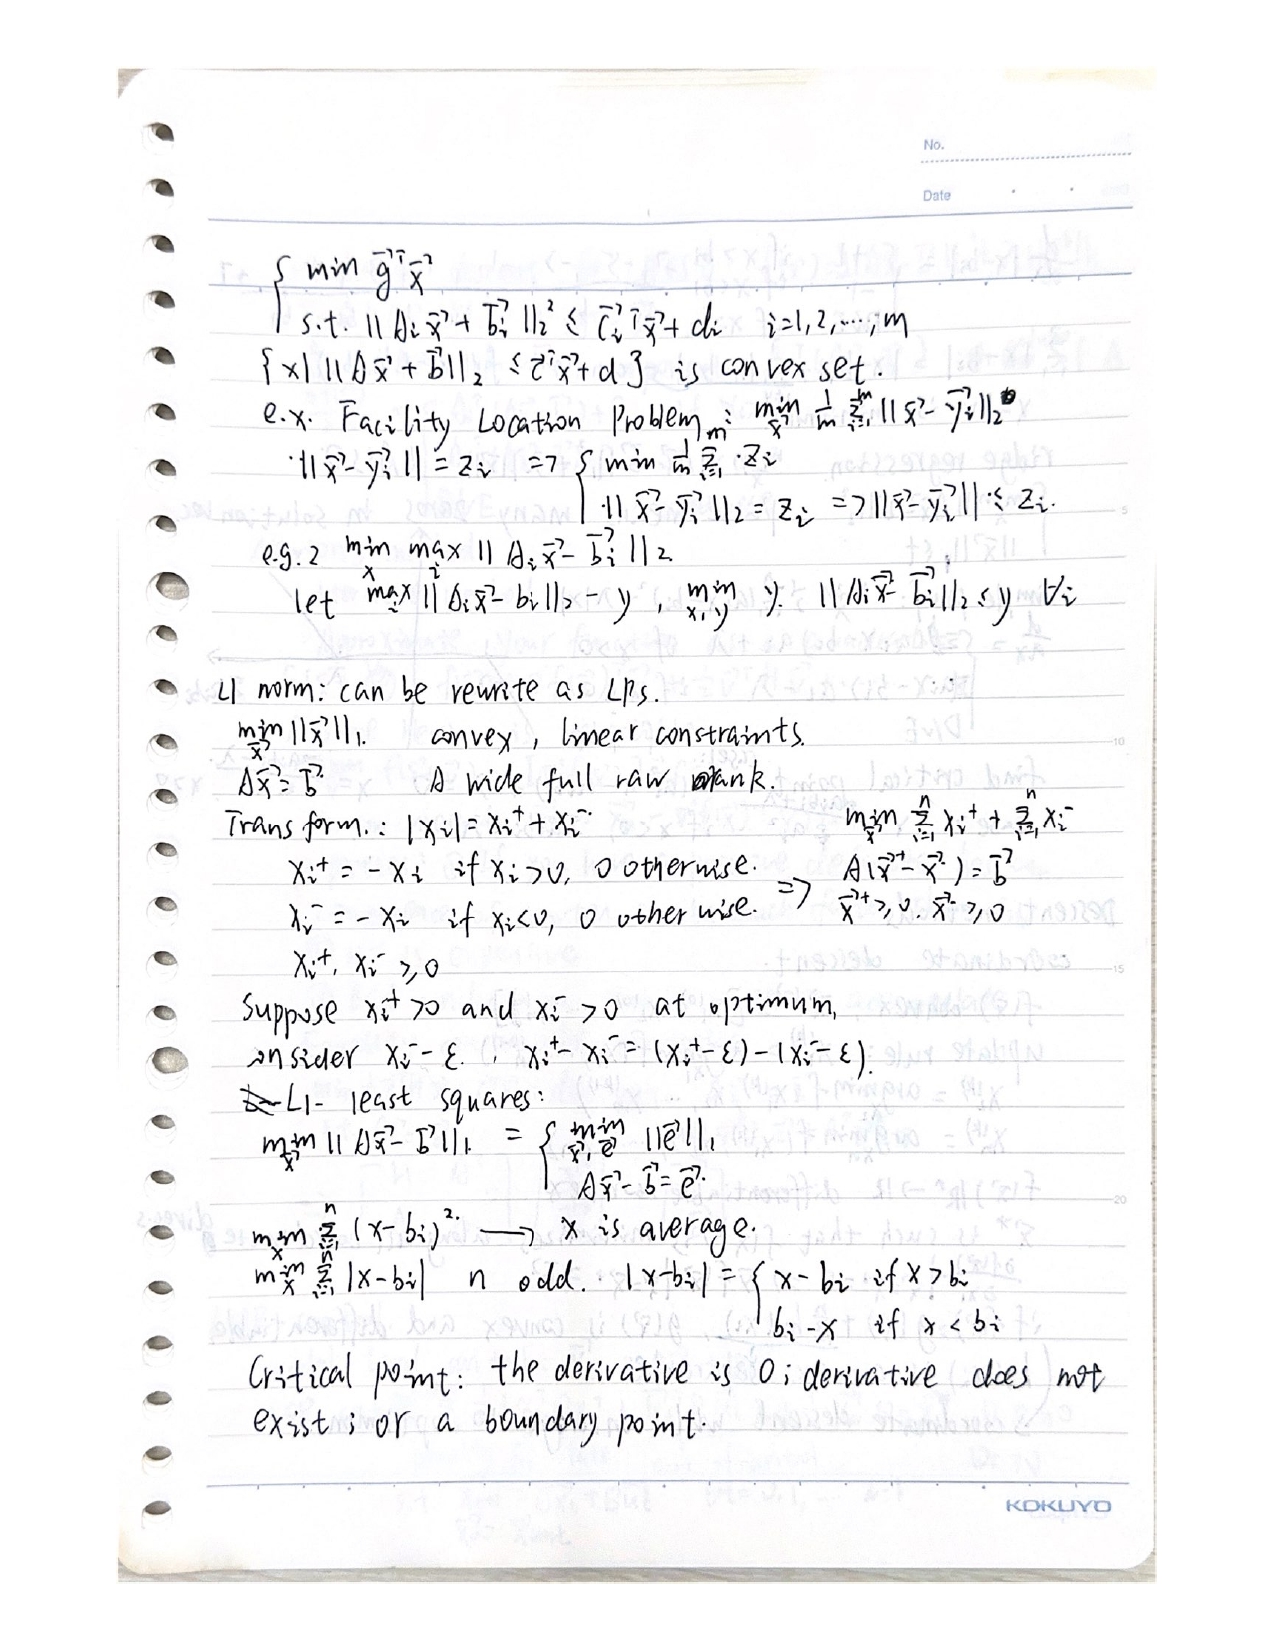 No.
Date
{ min g⃗ᵀx⃗
s.t. ||Aᵢx⃗ + b⃗ᵢ||₂² ≤ c⃗ᵢᵀx⃗ + dᵢ  i=1,2,…,m
{x| ||Ax⃗ + b⃗||₂ ≤ c⃗ᵀx⃗ + d} is convex set.
e.x. Facility Location Problem: min_x⃗ 1/m Σᵢ₌₁ᵐ ||x⃗ - y⃗ᵢ||₂
||x⃗ - y⃗ᵢ|| = zᵢ ⇒ { min 1/m Σᵢ₌₁ᵐ zᵢ
||x⃗ - y⃗ᵢ||₂ = zᵢ ⇒ ||x⃗ - y⃗ᵢ|| ≤ zᵢ.
e.g.2 min_x max_i ||Aᵢx⃗ - b⃗ᵢ||₂
let max_i ||Aᵢx⃗ - bᵢ||₂ - y, min_{x,y} y. ||Aᵢx⃗ - b⃗ᵢ||₂ ≤ y ∀i
L1 norm: can be rewrite as LPs.
min_x⃗ ||x⃗||₁. convex, linear constraints.
Ax⃗ = b⃗ A wide full raw rank.
Transform.: |xᵢ| = xᵢ⁺ + xᵢ⁻ min_x⃗ Σᵢ₌₁ⁿ xᵢ⁺ + Σᵢ₌₁ⁿ xᵢ⁻
xᵢ⁺ = -xᵢ if xᵢ>0, 0 otherwise. ⇒ A(x⃗⁺ - x⃗⁻) = b⃗
xᵢ⁻ = -xᵢ if xᵢ<0, 0 otherwise. x⃗⁺ ≥ 0. x⃗⁻ ≥ 0
xᵢ⁺, xᵢ⁻ ≥ 0
Suppose xᵢ⁺ > 0 and xᵢ⁻ > 0 at optimum,
onsider xᵢ⁻ - ε. , xᵢ⁺ - xᵢ⁻ = (xᵢ⁺ - ε) - (xᵢ⁻ - ε).
L1- least squares:
min_x⃗ ||Ax⃗ - b⃗||₁ = { min_{x⃗,e⃗} ||e⃗||₁
Ax⃗ - b⃗ = e⃗.
min_x Σᵢ₌₁ⁿ (x - bᵢ)². ⟶ x is average.
min_x Σᵢ₌₁ⁿ |x - bᵢ| n odd. |x - bᵢ| = { x - bᵢ if x > bᵢ
bᵢ - x if x < bᵢ
Critical point: the derivative is 0; derivative does not
exist; or a boundary point.
KOKUYO